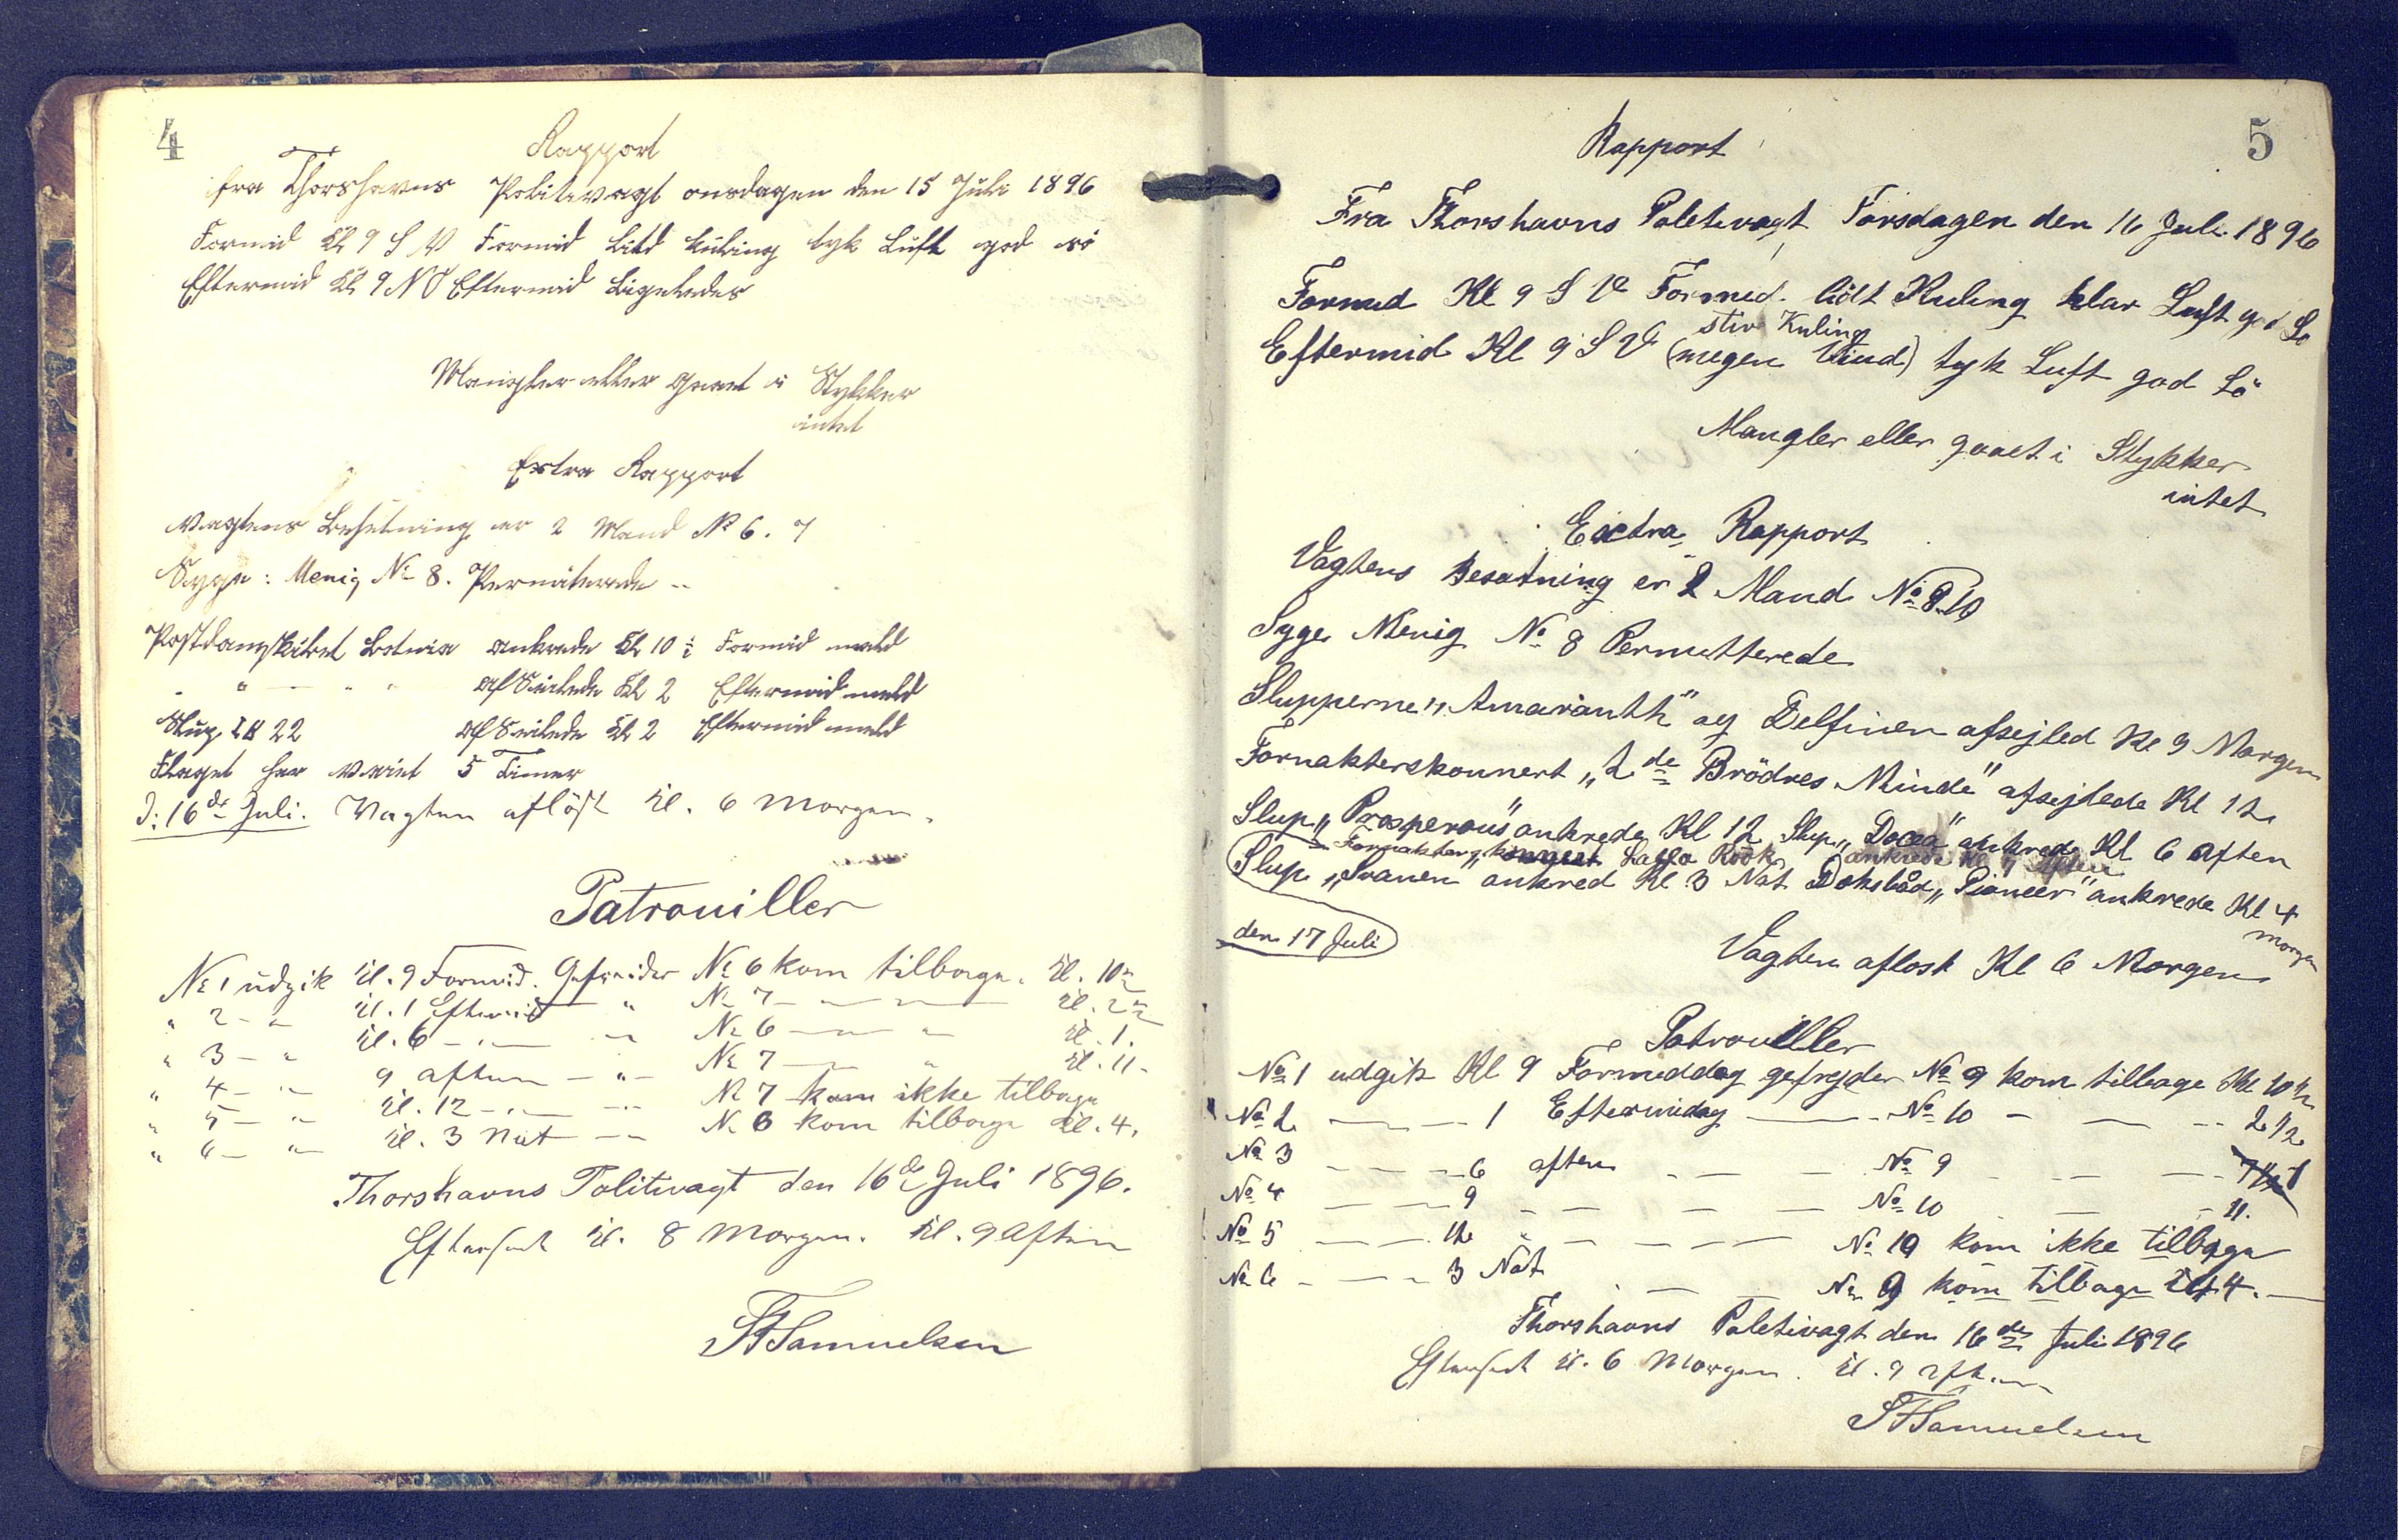 4
Rapport
fra Thorshavns Politivagt onsdagen den 15 Juli 1896
Formid Kl 9 S V Formid Lidt kuling tyk Luft god sö
Eftermid Kl 9 N O Eftermid Ligeledes
Mangler eller gaaet i Stykker
intet
Extra Rapport
Vagtens Besetning er 2 Mand No 6. 7
Syge: Menig No 8. Permiterede
Postdampskibet Botnia ankrede Kl 10½ Formid meld
" " " afSeilede Kl 2 Eftermid meld
Slup 22 afSeilede Kl 2 Eftermid meld
Flaget har Vaiet 5 Timer
D: 16de Juli. Vagten aflöst Kl. 6 Morgen.
Patrouiller
No 1 udgik Kl. 9 Formid. Gefreider No 6 kom tilbage. Kl. 10½
" 2 - " Kl. 1 Eftermid " No 7 Kl. 2½
" 3 - " Kl. 6 No 6 Kl. 1.
" 4 - " 9 aften - " - No 7 Kl. 11.
" 5 - " Kl. 12 No 7 kom ikke tilbage
" 6 - " Kl. 3 Nat No 6 kom tilbage Kl. 4.
Thorshavns Politivagt den 16de Juli 1896.
Efterseet Kl. 8 Morgen. Kl. 9 Aften
Samuelsen
5
Rapport
Fra Thorshavns Poletivagt Torsdagen den 16 Juli 1896
Formed Kl 9 S V Formed. lidt Kuling klar Luft god Sö
stiv Kuling
Eftermid Kl 9 S V (megen Vind) tyk Luft god Sö
Mangler eller gaaet i Stykker
intet
Eictra Rapport
Vagtens Besatning er 2 Mand No 9.10
Syge Menig No 8 Permetterede
Slupperne "Amaranth" og Delfinen afsejled Kl 9 Morgen
Fornakterskonnert "2de Brödres Minde" afsejlede Kl 12
Slup "Prosperous" ankrede Kl 12 Slup ankrede Kl 6 Aften
Rook ankrede Kl Aften
Slup "Svanen" ankred Kl 3 Nat "Pioneer" ankrede Kl 4
morgen
den 17 Juli
Vagten aflost Kl 6 Morgen
Patrouiller
No 1 udgik Kl 9 Formeddag gefrejder No 9 kom tilbage Kl 10½
No 2 1 Eftermidag No 10 2½
No 3 6 aften No 9
No 4 9 No 10 11.
No 5 12 " No 10 kom ikke tilbage
No 6 3 Nat No 9 kom tilbage Kl 4.
Thorshavns Poletivagt den 16de Juli 1896
Efterseet Kl. 6 Morgen. Kl. 9 Aften
Samuelsen